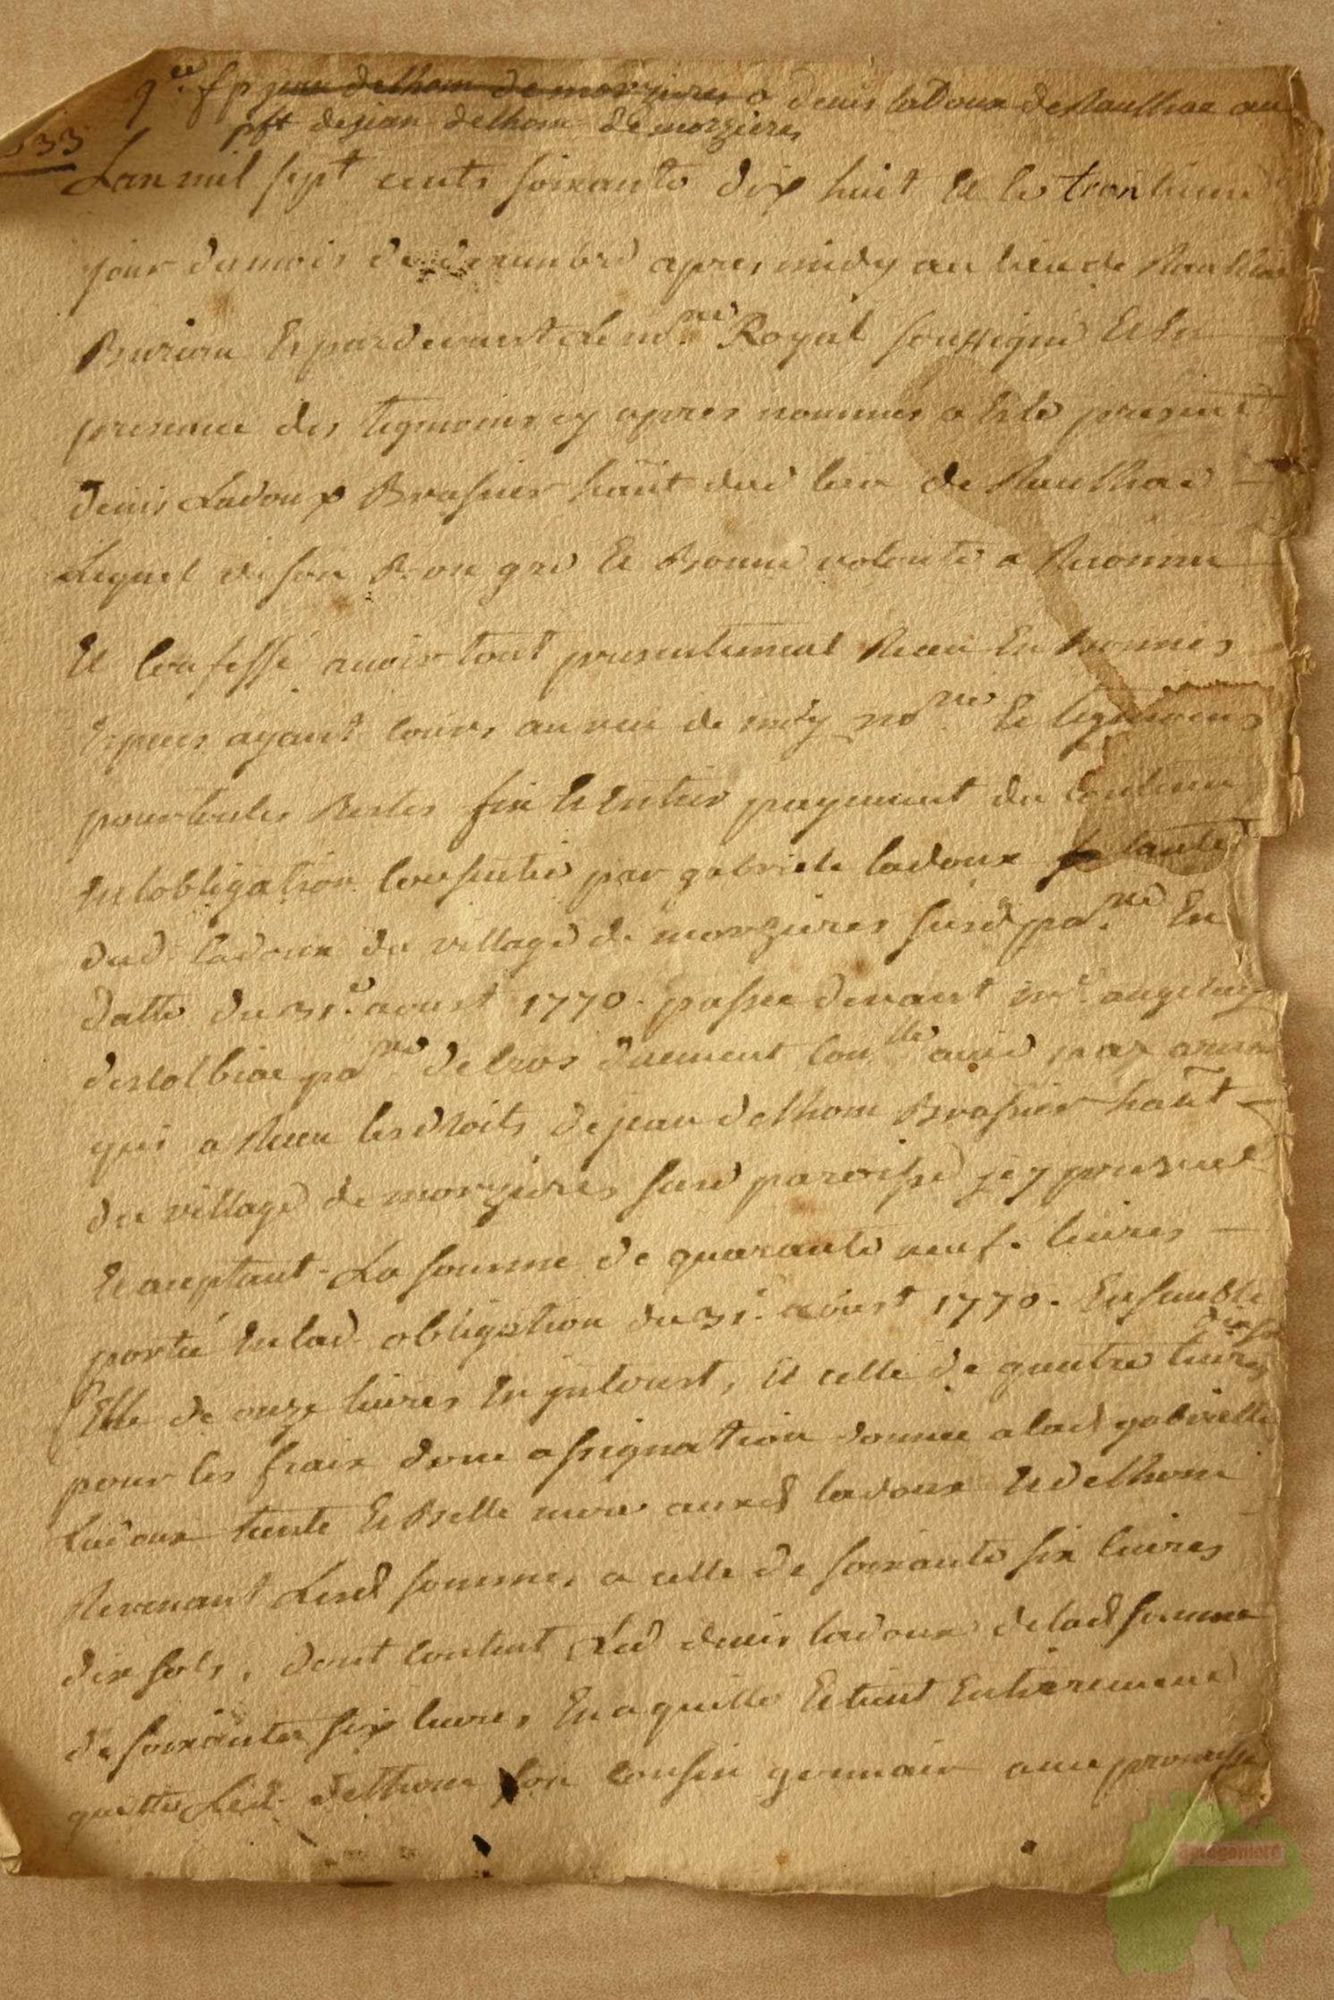 q.ce f p jean delhom de morzieres a denis ladoux de Raulhac au
pft de jean delhom de morzieres
333
Lan mil sept cents soixante dix huit et le trentieme
jour du mois de decembre apres midy au lieu de Raulhac
Bureau et pardevant le no.re Royal soussigné et en
presence des tegmoins cy apres nommés a este present
denis Ladoux Brassier hañt dud lieu de Raulhac
Lequel de son Bon gré et Bonne volonté a Reconnu
et Confessé avoir tout presentement Receu en Bonnes
Especes ayant cours au veu de moy no.re et tegmoins
pour toutes Restes fin et entier payement du contenu
en lobligation Consentie par gabriele ladoux tante
dud ladoux du village de morzieres susd pa.sse En
datte du 31.e aoust 1770. passée devant m.e
pa.sse de Cros duement Con.llé par
qui a Receu les droits de jean delhom Brassier hañt
du village de morzieres susd paroisse jcy present
et aceptant La somme de quarante neuf livres
porteé en lad obligation du 31.e aoust 1770. Ensemble
Celle de onze livres en jnteret, et celle de quatre livres
dix sols
pour les fraix dune assignation donnée a lad gabrielle
Ladoux tante et Belle mere auxd ladoux et delhom
Revenant Lesd sommes a celle de soixante six livres
dix sols, dont content Led denis ladoux de lad somme
de soixante six livres, En a quitté et tient Entierement
quitte Led. delhom son cousin germain avec promesse
apregomera